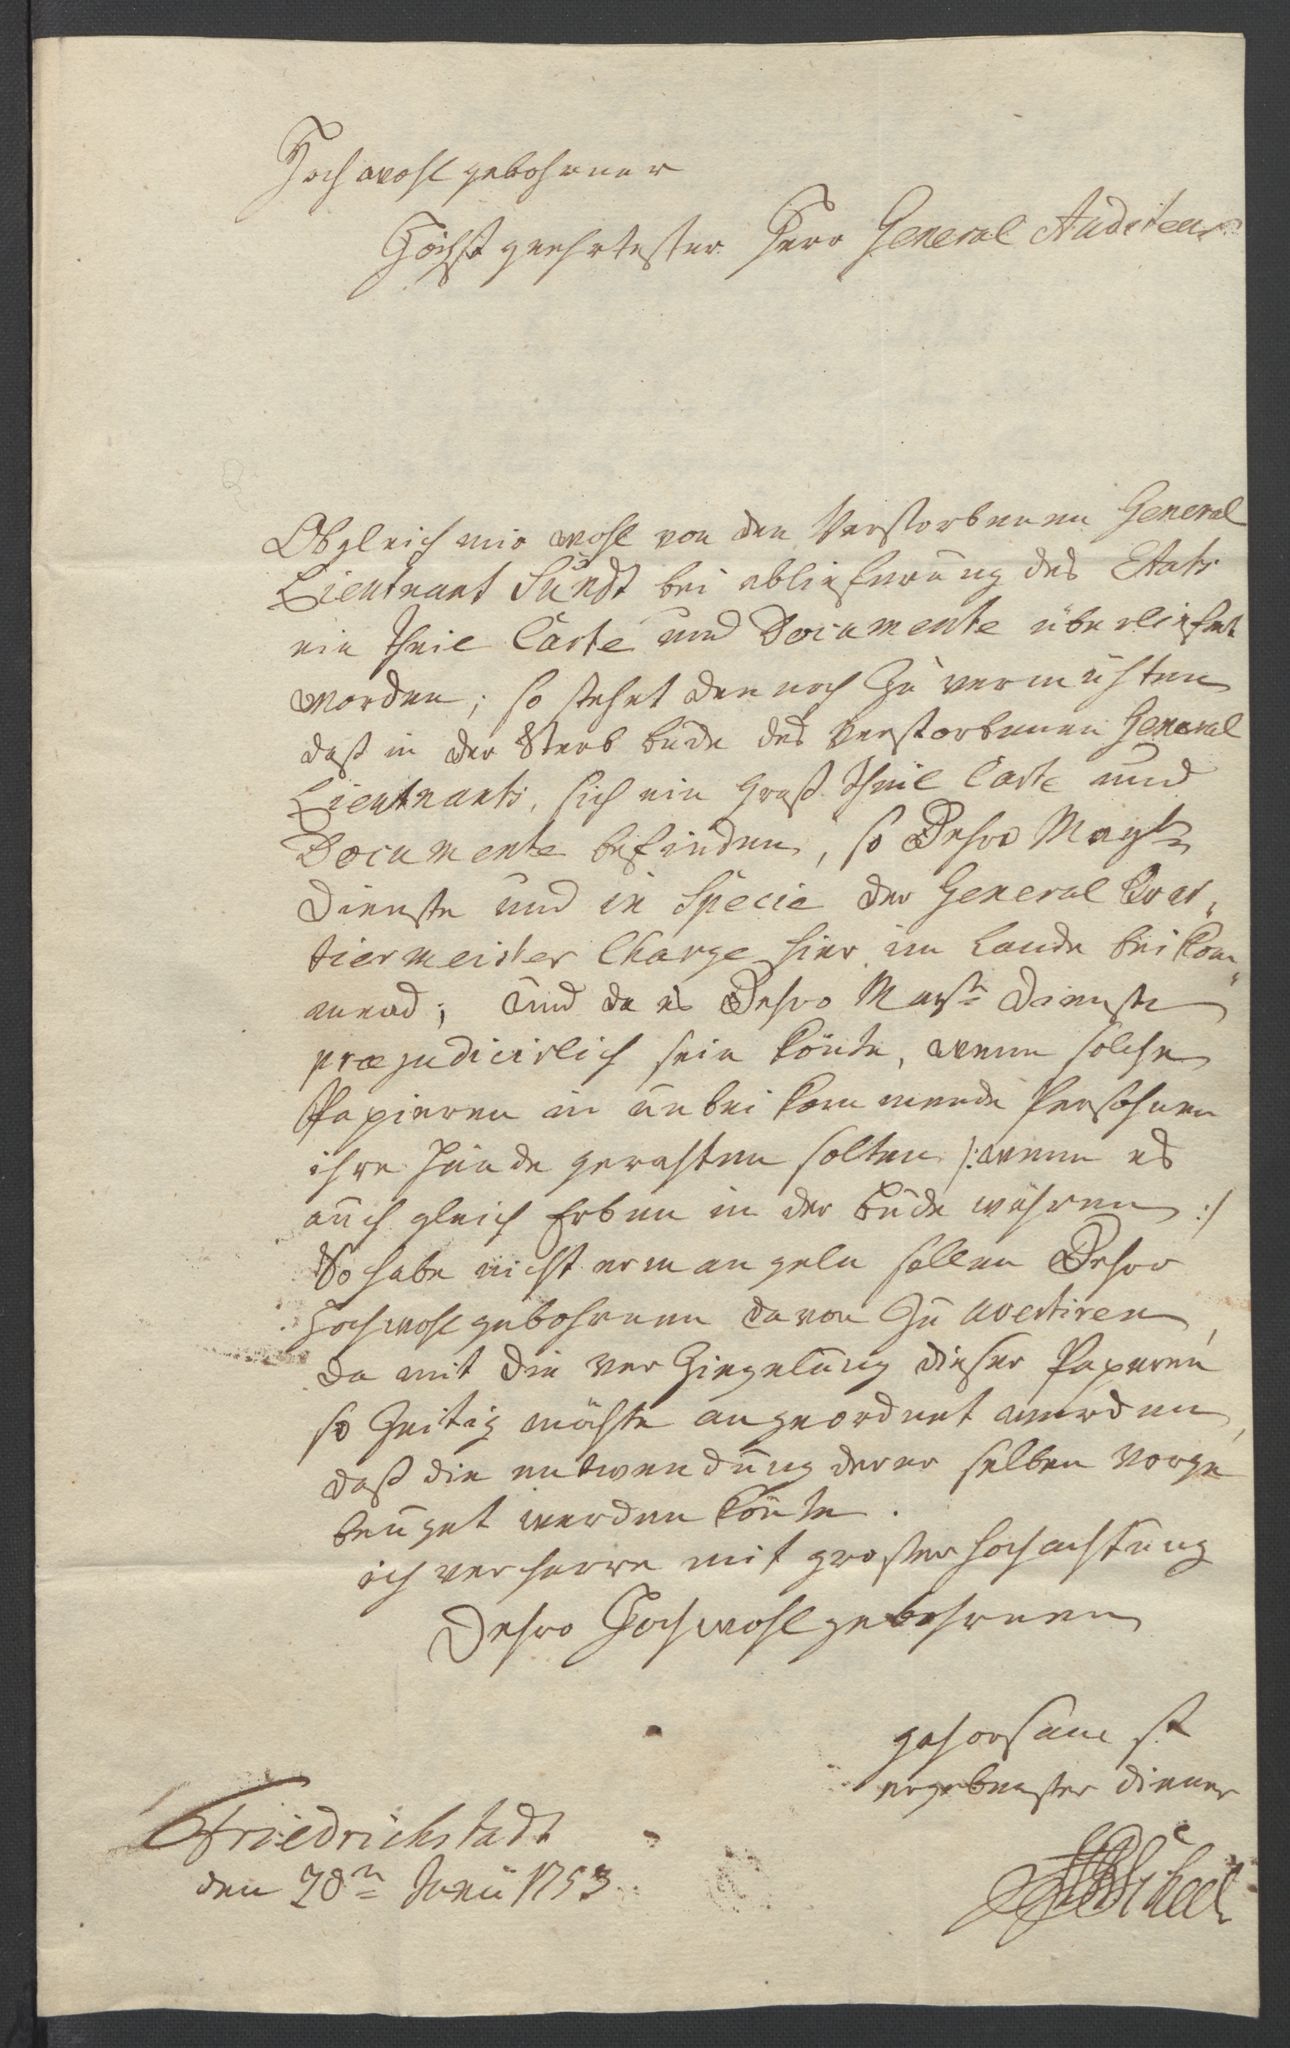 Hochwohlgebohrner
Höchst geehrtester Herr General Auditeur
Obgleich mir wohl von den Verstorbenen General
Lieutnant Sundt bei ablieferung des Etats
ein theil Carte und Documente überliefert
worden; so stehet dennoch zu vermuhten
daß in der Sterb bude des Verstorbenen General
Lieutnants, sich ein groß theil Carte und
Documente befinden, so Dehro Mayt
Dienste und in Specie der General Quar„
tiermeister Charge hier im Lande bei kom„
mend; Und da es Dehro Mayst Dienste
præjudicirlich sein könte, wenn solche
Papieren in unbeikommende Persohnen
ihre Hände gerahten solten /: wenn es
auch gleich Erben in der bude währen :/
So habe nicht ermangeln sollen Dehro
Hochwohlgebohrnen davon zu avertiren,
da mit die verziegelung dieser Paperen
so zeitig möchte angeordnet werden,
daß die entwendung derer selben vorge
beuget werden könte.
ich verharre mit grosser hochachtung
Dehro Hochwohlgebohrnen
gehorsamst
ergebenster diener
Friedrichstadt
den 28n Junii 1753.
Scheel